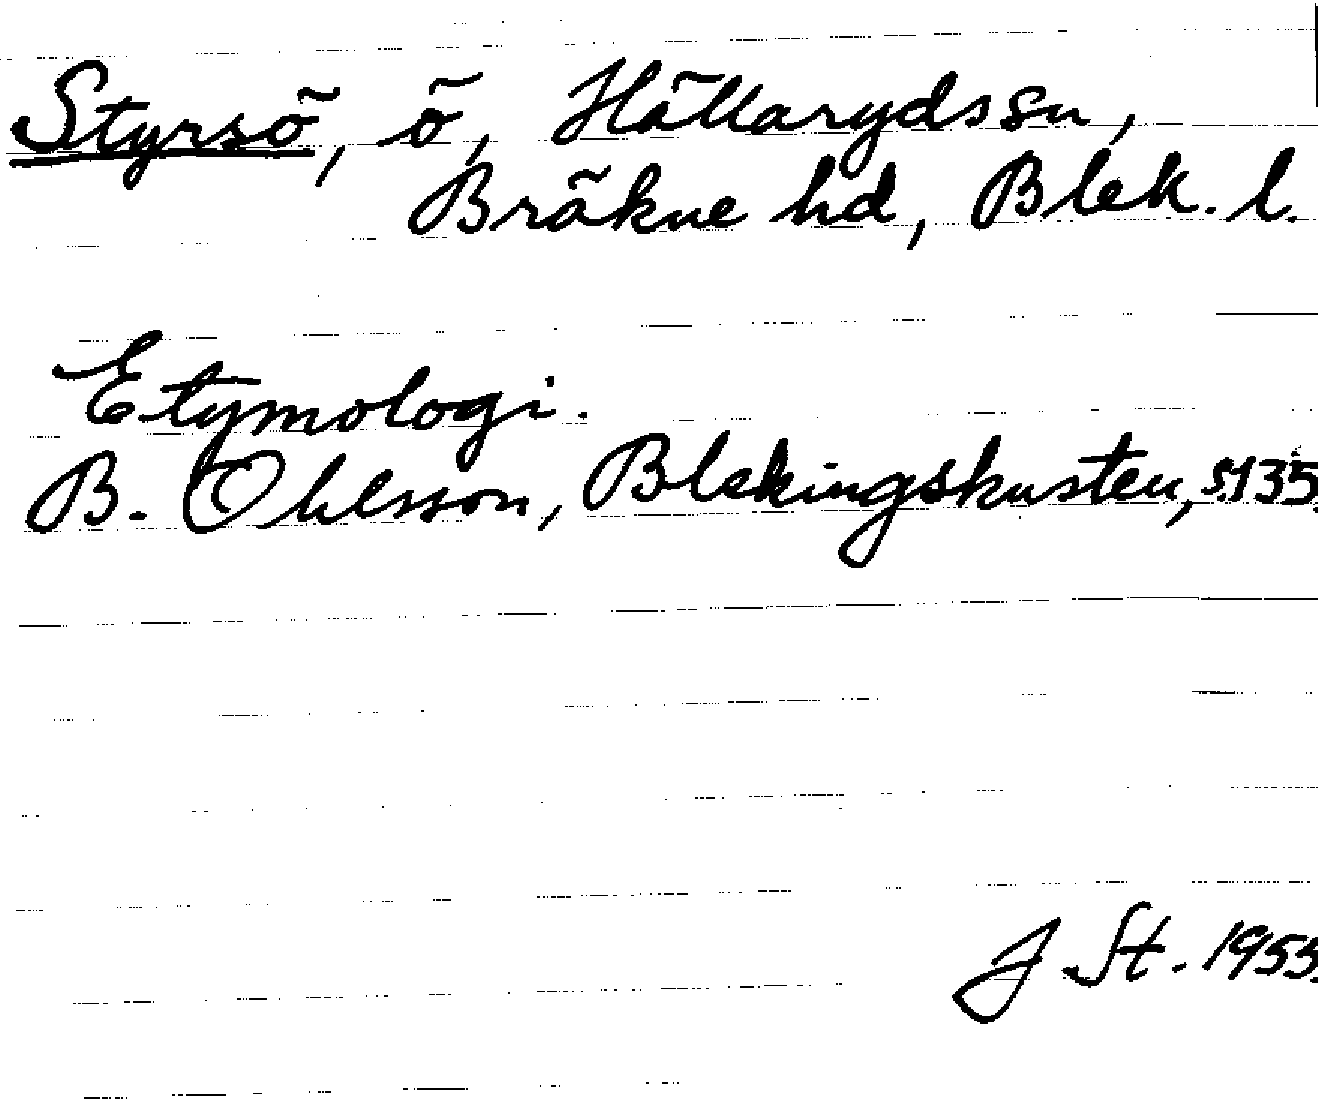 Styrsö, ö, Hällarydssn,
Bräkne hd, Blek. l.
Etymologi.
B. Ohlsson, Blekingskusten, s.135.
J. St. 1955.